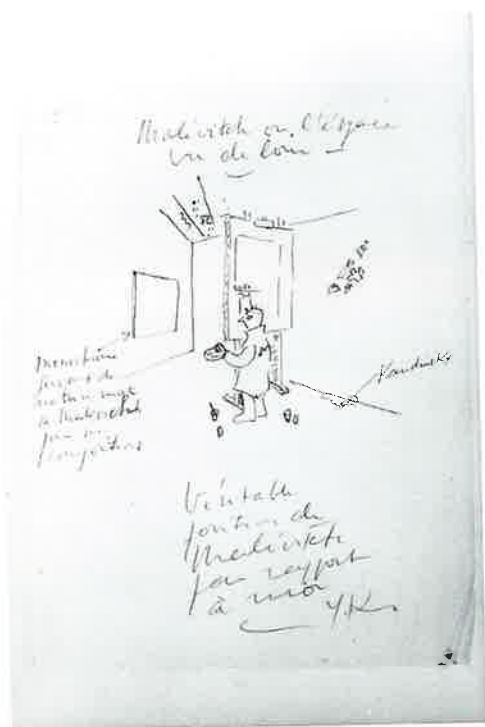 Malévitch ou l'espace
vu de loin —
Monochrome
servant de
nature morte
à Malévitch
pour ses
compositions
Kandinsky
Véritable
position de
Malévitch
par rapport
à moi
Y.K.